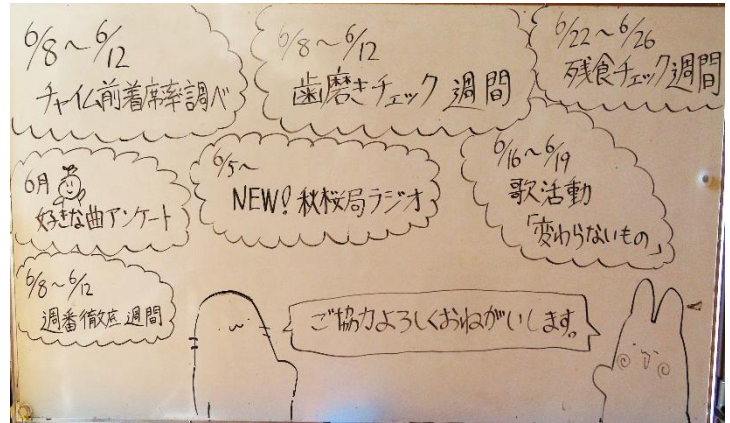 6/8～6/12
チャイム前着席率調べ
6/8～6/12
歯磨きチェック週間
6/22～6/26
残食チェック週間
6月
好きな曲アンケート
6/5～
NEW! 秋桜局ラジオ
6/16～6/19
歌活動
「変わらないもの」
6/8～6/12
週番徹底週間
ご協力よろしくおねがいします。